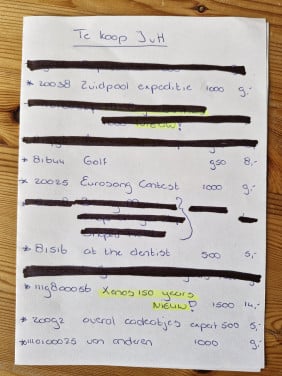 Te koop JvH
* 20038 Zuidpool expeditie 1000 9,-
NIEUW!
* 81544 Golf 950 8,-
* 20025 Eurosong Contest 1000 9,-
* 81516 at the dentist 500 5,-
* 1119800056 Xenos 150 years
NIEUW! 1500 14,-
* 20092 overal cadeautjes expat 500 5,-
* 1110100025 van anderen 1000 9,-